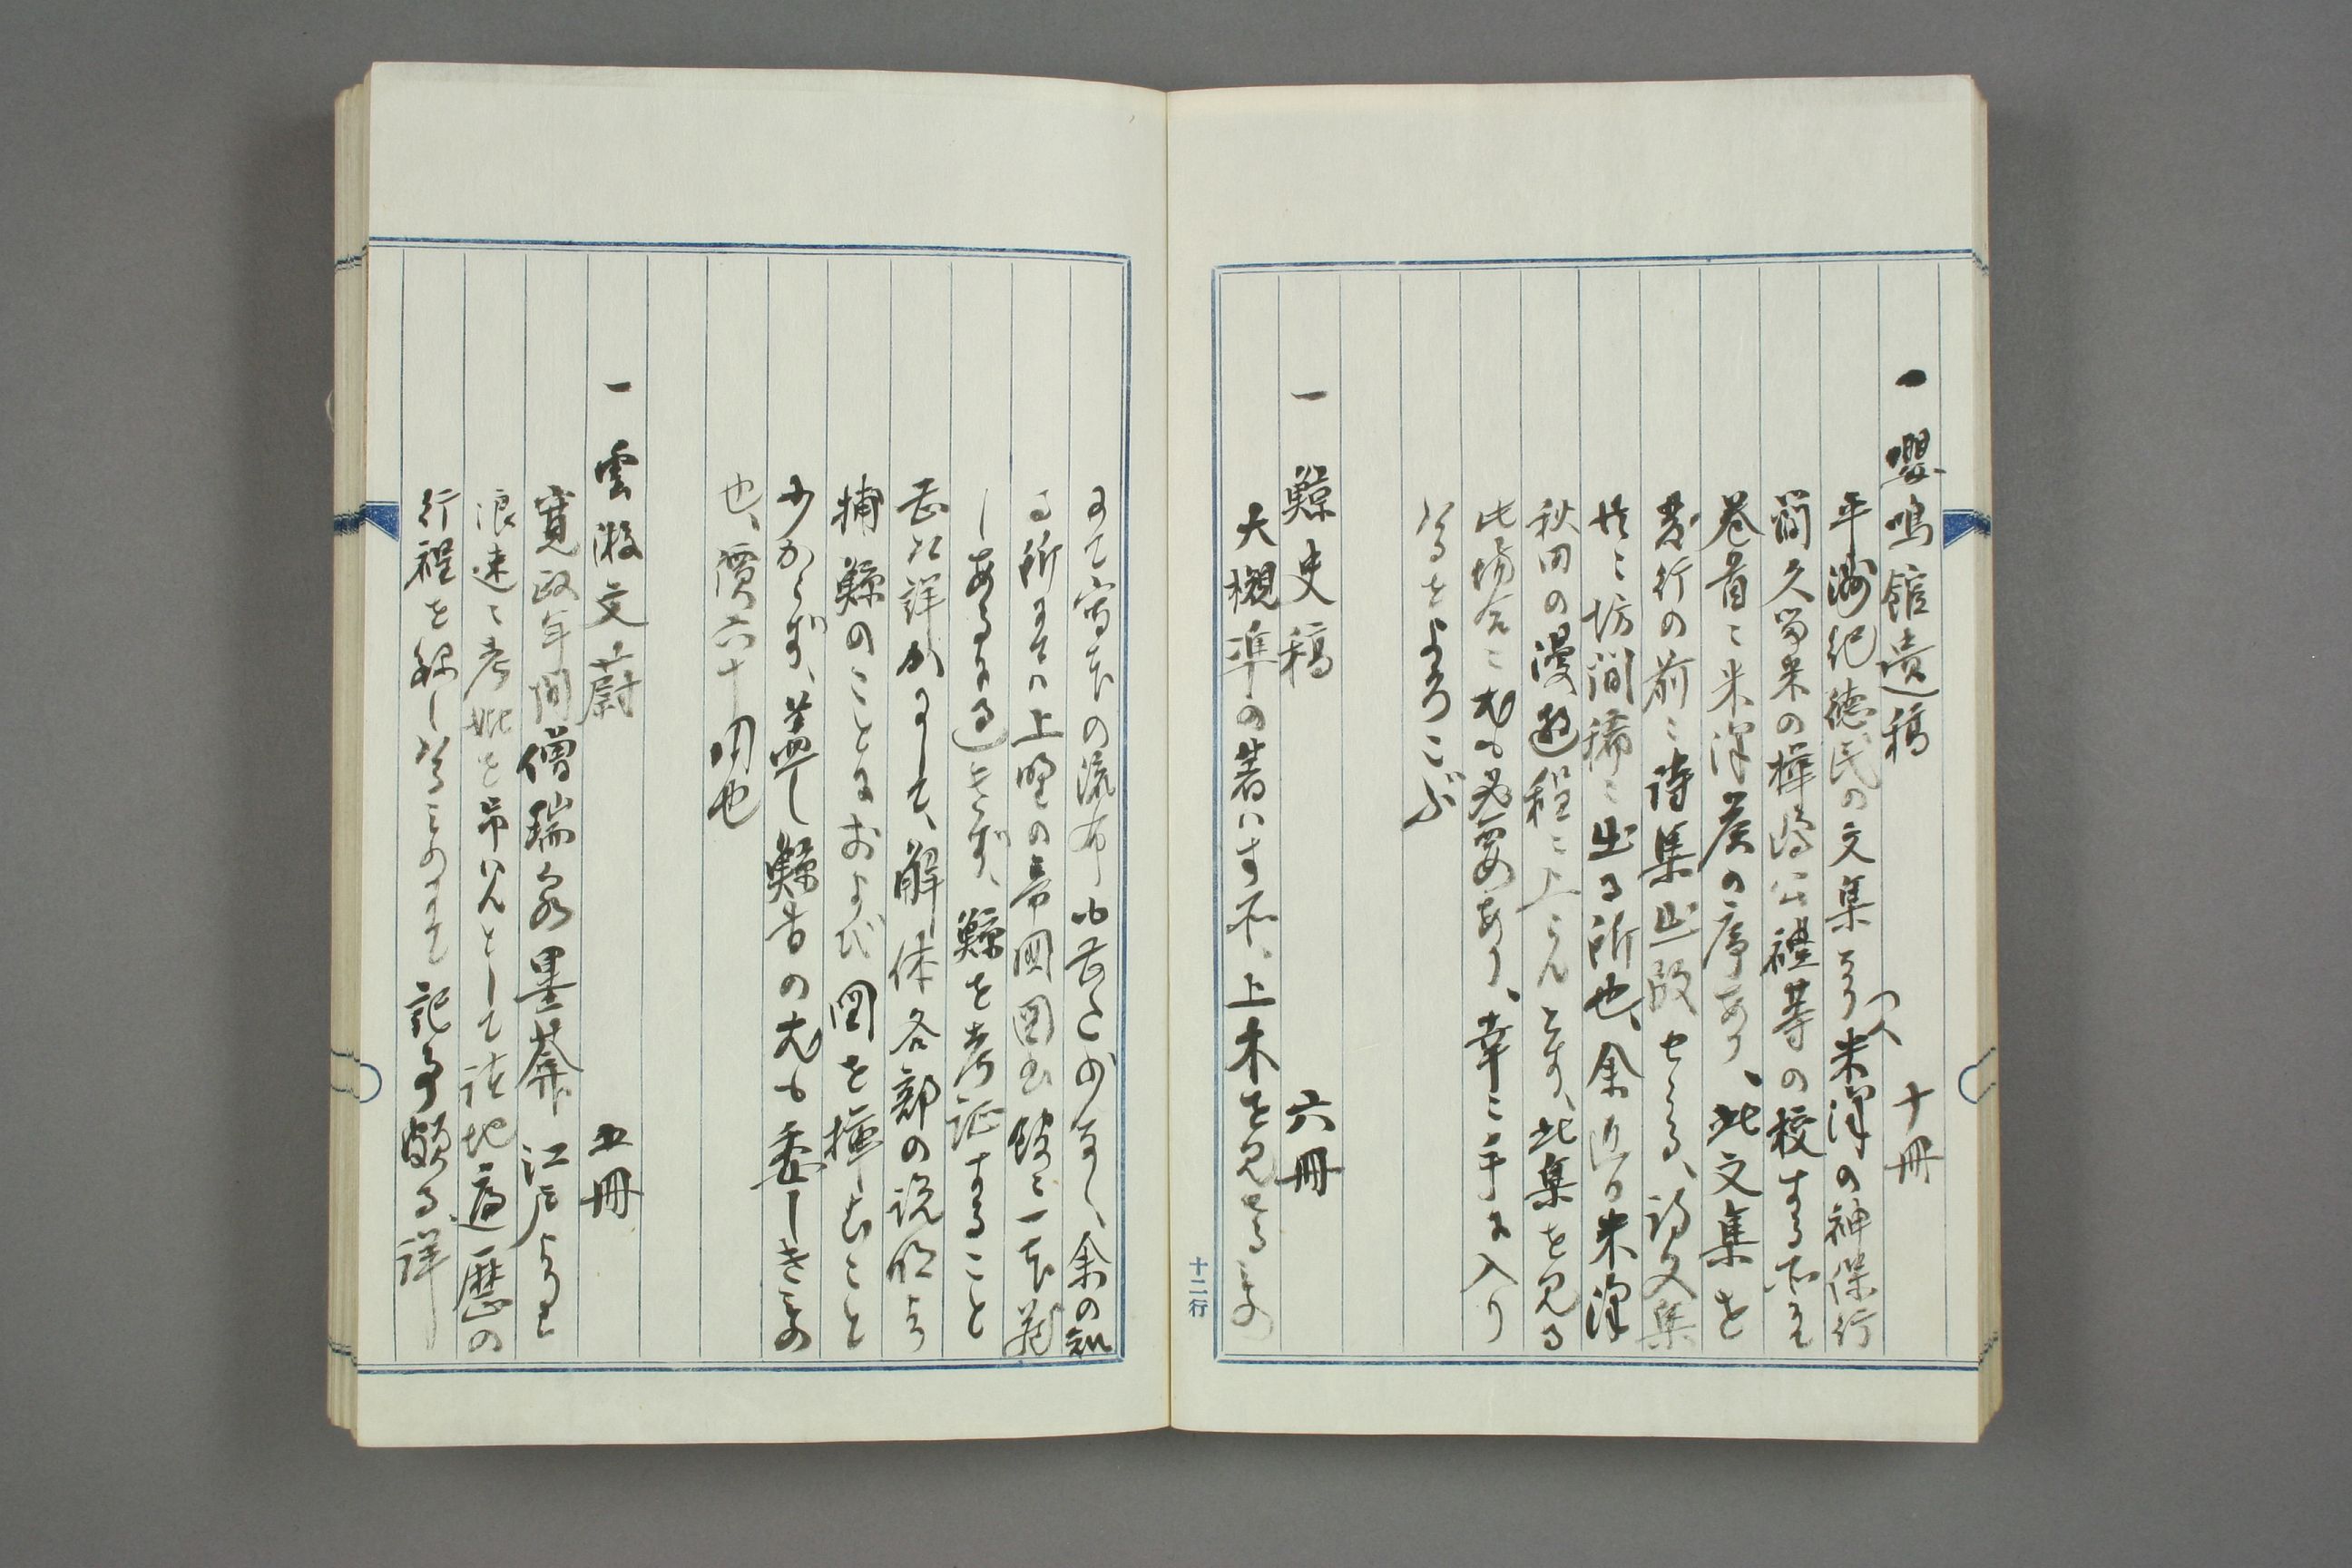 一 嚶鳴館遺稿 十冊
平洲紀徳民の文集ニて米澤の神保行
簡久留米の樺島公禮等の校する所也
巻首ニ米澤侯の序あり、此文集を
発行の前ニ詩集出版せらる、詩文集
共ニ坊間稀ニ出る所也、余近日米澤
秋田の漫遊程ニ上らんとす、此集を見る
此場合ニ尤も必要あり、幸ニ手に入り
たるをよろこぶ
一 鯨史稿 六冊
大槻準の著はす所、上木を見ざるもの
にて写本の流布も甚だ少なし、余の知
る所にては上野の帝国図書館ニ一本蔵
しあるに過きず、鯨を考証すること
甚だ詳かにして、解体各部の説明より
捕鯨のことにおよび図を挿しむこと
少からず、蓋し鯨書の尤も委しきもの
也、價六十円也
一 雲游文蔚 五冊
寛政年間僧瑞泉墨荅江戸より
浪速ニ考妣を弔はんとして諸地遍歴の
行程を録したるものにて記事頗る詳
十二行